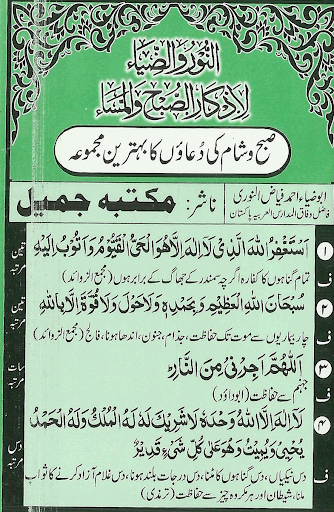 النور والضیاء
لاذکار الصباح والمساء
صبح و شام کی دُعاؤں کا بہترین مجموعہ
ابوضیاء احمد فیاض النوری
فاضل وفاق المدارس العربیہ پاکستان
ناشر: مکتبہ جمیل
۱ اَسْتَغْفِرُ اللهَ الَّذِیْ لَا اِلٰهَ اِلَّا هُوَ الْحَیُّ الْقَیُّوْمُ وَاَتُوْبُ اِلَیْهِ تین مرتبہ
ف تمام گناہوں کا کفارہ اگرچہ سمندر کے جھاگ کے برابر ہوں (مجمع الزوائد)
۲ سُبْحَانَ اللهِ الْعَظِیْمِ وَبِحَمْدِهٖ وَلَا حَوْلَ وَلَا قُوَّةَ اِلَّا بِاللهِ تین مرتبہ
ف چار بیماریوں سے موت تک حفاظت، جذام، جنون، اندھا ہونا، فالج (مجمع الزوائد)
۳ اَللّٰهُمَّ اَجِرْنِیْ مِنَ النَّارِ سات مرتبہ
ف جہنم سے حفاظت (ابوداؤد)
۴ لَا اِلٰهَ اِلَّا اللهُ وَحْدَهٗ لَا شَرِیْكَ لَهٗ لَهُ الْمُلْكُ وَلَهُ الْحَمْدُ
یُحْیِیْ وَیُمِیْتُ وَهُوَ عَلٰی كُلِّ شَیْءٍ قَدِیْرٌ دس مرتبہ
ف دس نیکیاں، دس گناہوں کا مٹنا، دس درجات بلند ہونا، دس غلام آزاد کرنے کا ثواب
ملنا، شیطان اور ہر مکروہ چیز سے حفاظت (ترمذی)